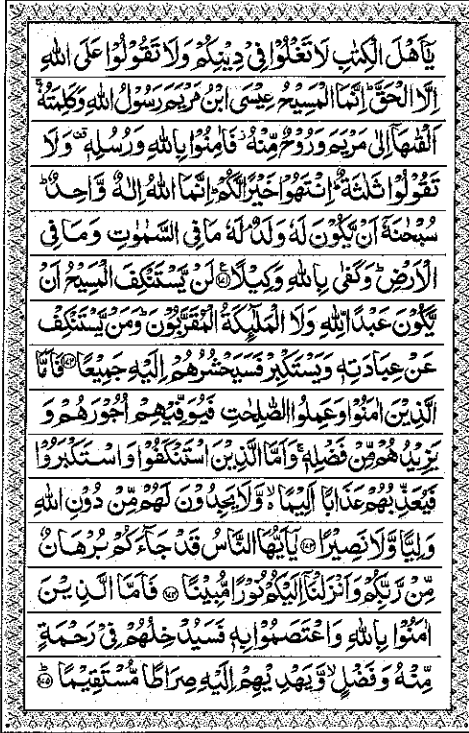 يٰٓاَهْلَ الْكِتٰبِ لَا تَغْلُوْا فِيْ دِيْنِكُمْ وَلَا تَقُوْلُوْا عَلَى اللّٰهِ
اِلَّا الْحَقَّ ؕ اِنَّمَا الْمَسِيْحُ عِيْسَى ابْنُ مَرْيَمَ رَسُوْلُ اللّٰهِ وَكَلِمَتُهٗ ۚ
اَلْقٰىهَاۤ اِلٰى مَرْيَمَ وَرُوْحٌ مِّنْهُ ؗ فَاٰمِنُوْا بِاللّٰهِ وَرُسُلِهٖ ۚ وَلَا
تَقُوْلُوْا ثَلٰثَةٌ ؕ اِنْتَهُوْا خَيْرًا لَّكُمْ ؕ اِنَّمَا اللّٰهُ اِلٰهٌ وَّاحِدٌ ؕ
سُبْحٰنَهٗۤ اَنْ يَّكُوْنَ لَهٗ وَلَدٌ ۘ لَهٗ مَا فِي السَّمٰوٰتِ وَمَا فِي
الْاَرْضِ ؕ وَكَفٰى بِاللّٰهِ وَكِيْلًا ﴿۱۷۱﴾ لَنْ يَّسْتَنْكِفَ الْمَسِيْحُ اَنْ
يَّكُوْنَ عَبْدًا لِّلّٰهِ وَلَا الْمَلٰٓئِكَةُ الْمُقَرَّبُوْنَ ؕ وَمَنْ يَّسْتَنْكِفْ
عَنْ عِبَادَتِهٖ وَيَسْتَكْبِرْ فَسَيَحْشُرُهُمْ اِلَيْهِ جَمِيْعًا ﴿۱۷۲﴾ فَاَمَّا
الَّذِيْنَ اٰمَنُوْا وَعَمِلُوا الصّٰلِحٰتِ فَيُوَفِّيْهِمْ اُجُوْرَهُمْ وَ
يَزِيْدُهُمْ مِّنْ فَضْلِهٖ ۚ وَاَمَّا الَّذِيْنَ اسْتَنْكَفُوْا وَاسْتَكْبَرُوْا
فَيُعَذِّبُهُمْ عَذَابًا اَلِيْمًا ۙ وَّلَا يَجِدُوْنَ لَهُمْ مِّنْ دُوْنِ اللّٰهِ
وَلِيًّا وَّلَا نَصِيْرًا ﴿۱۷۳﴾ يٰٓاَيُّهَا النَّاسُ قَدْ جَآءَكُمْ بُرْهَانٌ
مِّنْ رَّبِّكُمْ وَاَنْزَلْنَاۤ اِلَيْكُمْ نُوْرًا مُّبِيْنًا ﴿۱۷۴﴾ فَاَمَّا الَّذِيْنَ
اٰمَنُوْا بِاللّٰهِ وَاعْتَصَمُوْا بِهٖ فَسَيُدْخِلُهُمْ فِيْ رَحْمَةٍ
مِّنْهُ وَفَضْلٍ ۙ وَّيَهْدِيْهِمْ اِلَيْهِ صِرَاطًا مُّسْتَقِيْمًا ﴿۱۷۵﴾ؕ